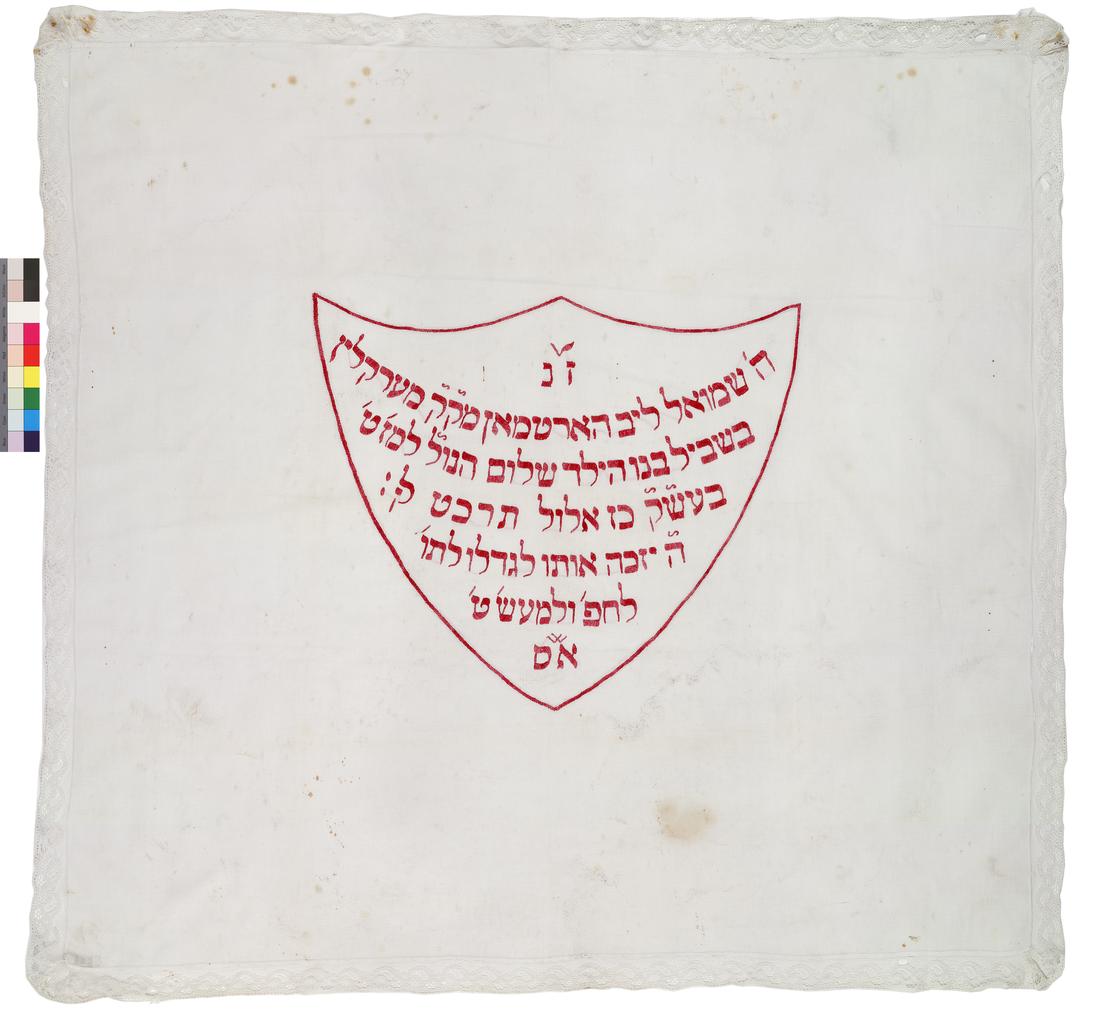 ז״נ
ה׳ שמואל ליב הארטמאן מק״ק מערקלין
בשביל בנו הילד שלום הנו״ל למז׳ט׳
בעש״ק כז אלול תרכט ל׃
ה׳ יזכה אותו לגדלו לתו׳
לחפ׳ ולמעש׳ ט׳
א״ס